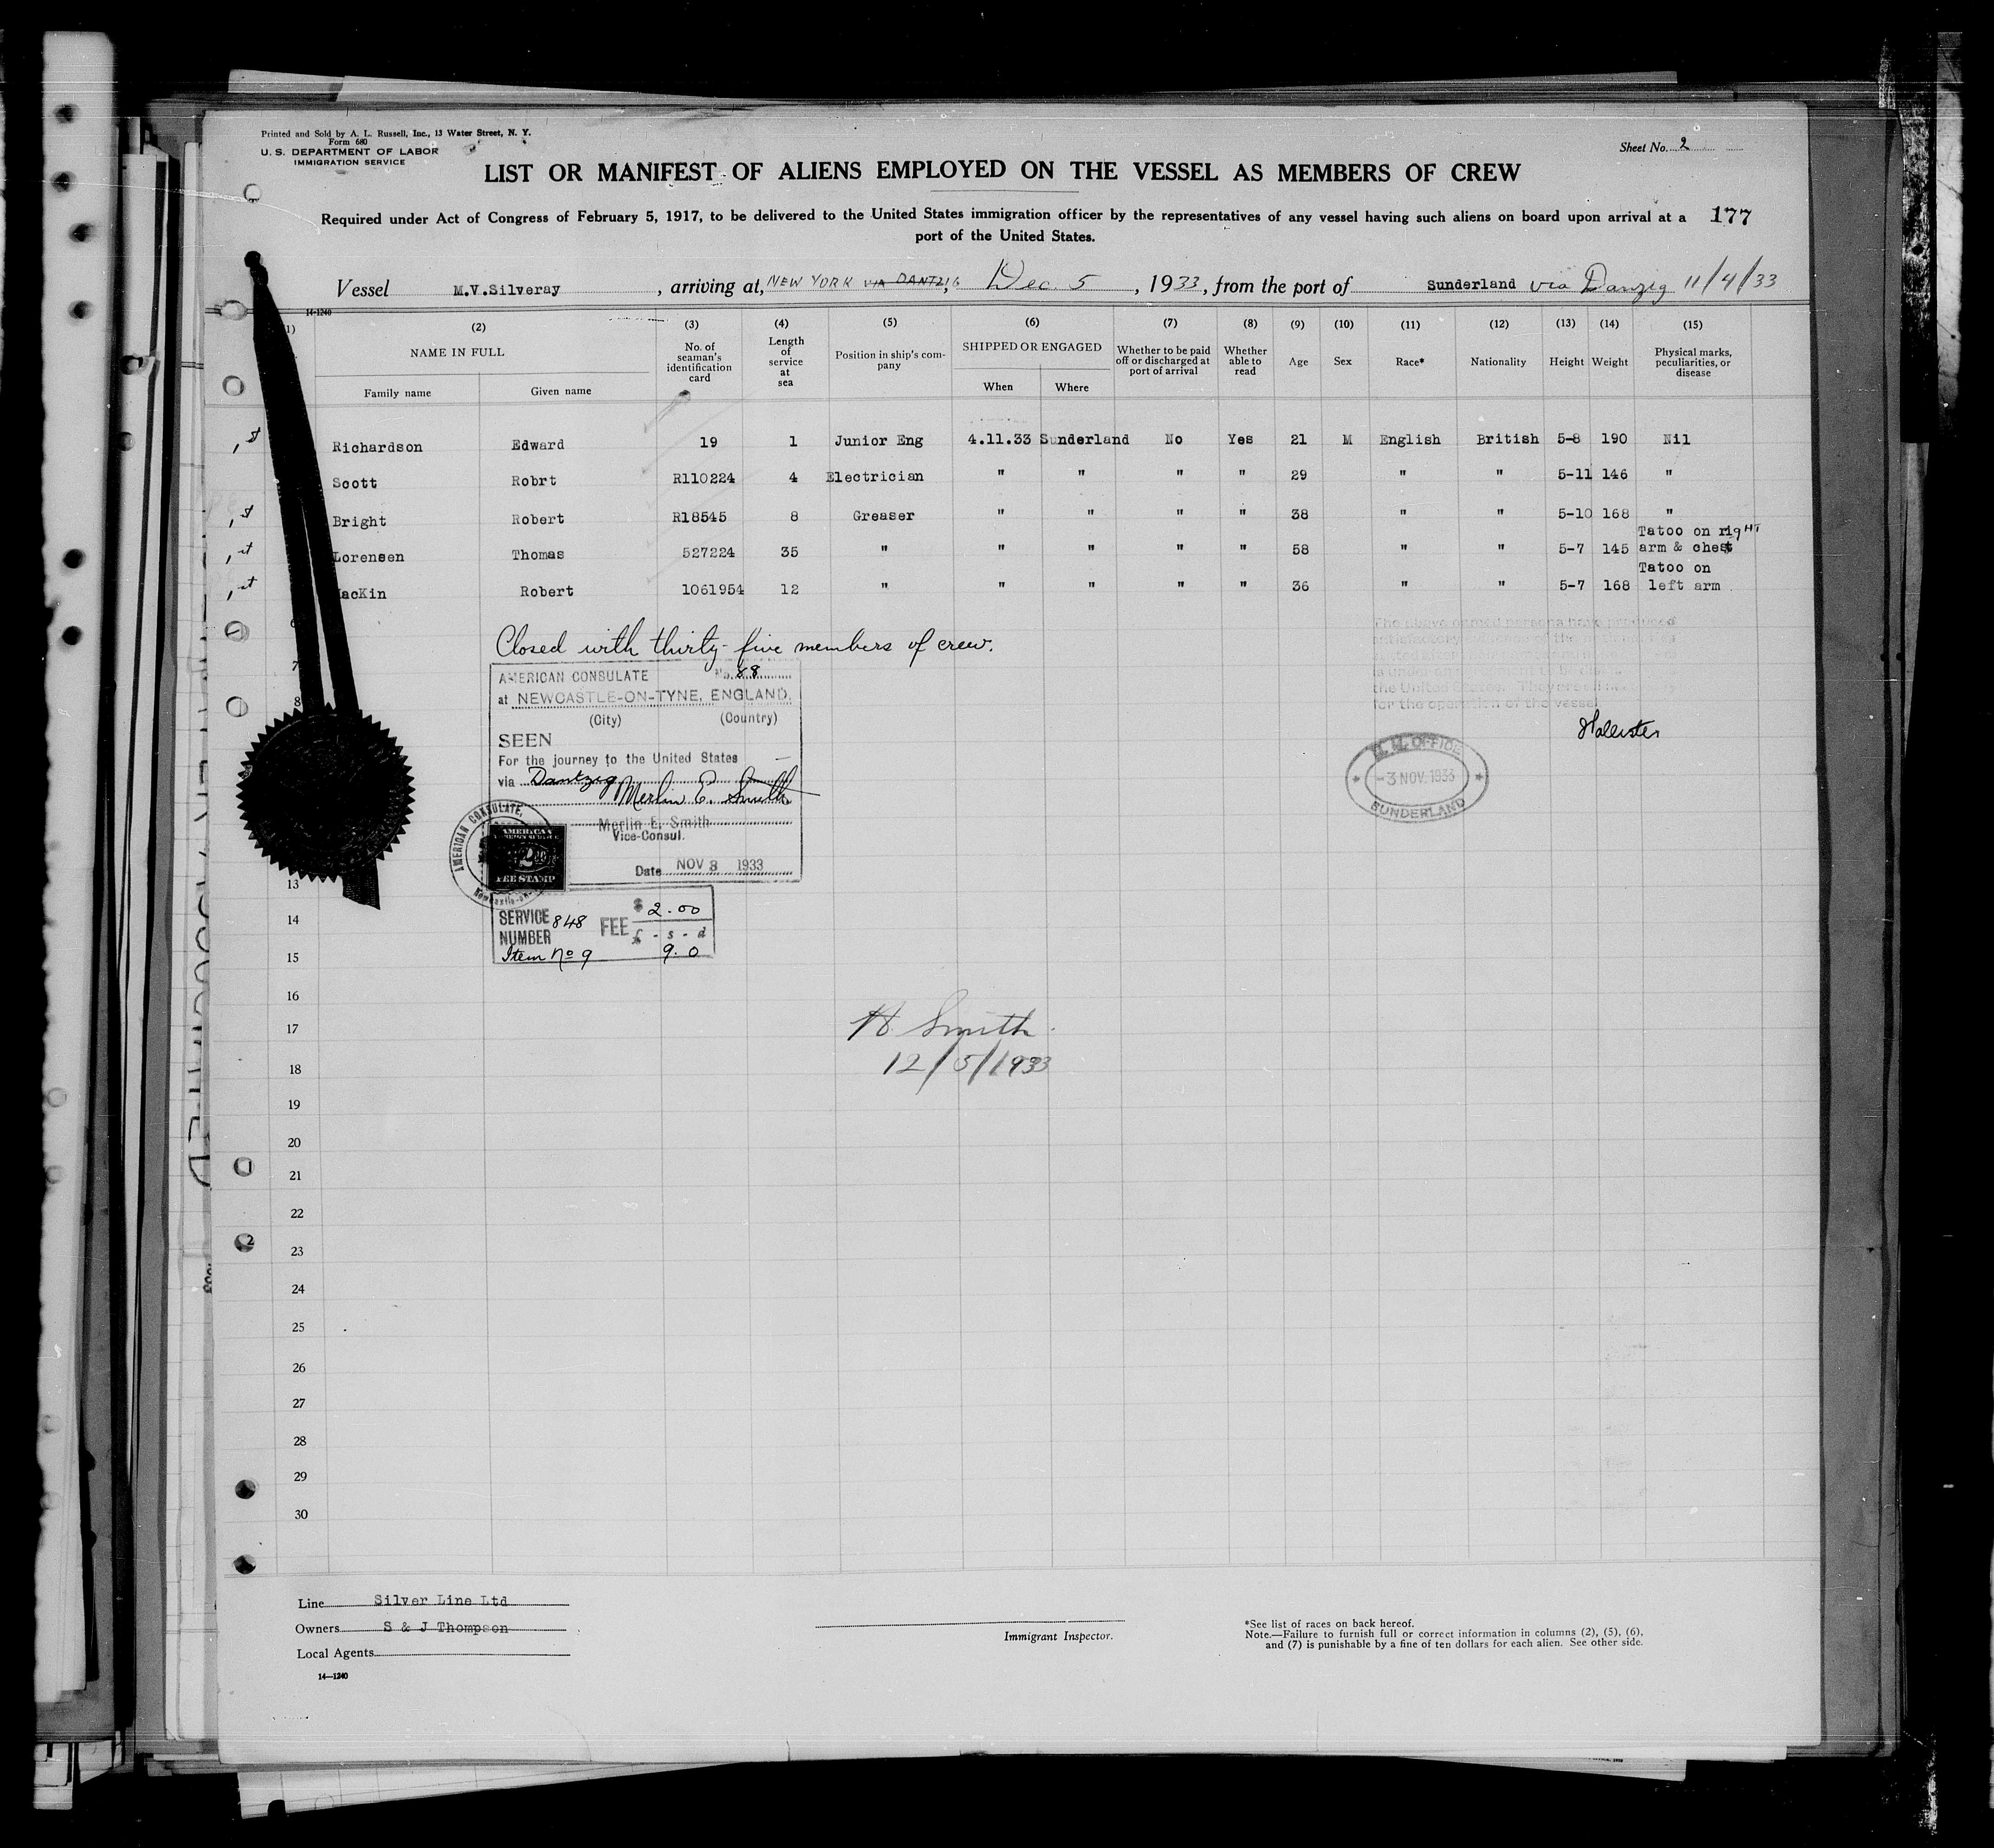 Printed and Sold by A. L. Russell, Inc., 13 Water Street, N. Y.
Form 680
U. S. DEPARTMENT OF LABOR
IMMIGRATION SERVICE
Sheet No. 2
LIST OR MANIFEST OF ALIENS EMPLOYED ON THE VESSEL AS MEMBERS OF CREW
Required under Act of Congress of February 5, 1917, to be delivered to the United States immigration officer by the representatives of any vessel having such aliens on board upon arrival at a
port of the United States.
177
Vessel M.V.Silveray, arriving at, NEW YORK VIA DANTZIG, Dec. 5, 1933, from the port of Sunderland via Danzig 11/4/33
14-1240
(1) (2) (3) (4) (5) (6) (7) (8) (9) (10) (11) (12) (13) (14) (15)
NAME IN FULL
Family name Given name
No. of seaman's identification card
Length of service at sea
Position in ship's company
SHIPPED OR ENGAGED
When Where
Whether to be paid off or discharged at port of arrival
Whether able to read
Age Sex Race* Nationality Height Weight
Physical marks, peculiarities, or disease
Richardson Edward 19 1 Junior Eng 4.11.33 Sunderland No Yes 21 M English British 5-8 190 Nil
Scott Robrt R110224 4 Electrician " " " " 29 " " 5-11 146 "
Bright Robert R18545 8 Greaser " " " " 38 " " 5-10 168 "
Lorensen Thomas 527224 35 " " " " " 58 " " 5-7 145 Tatoo on right arm & chest
MacKin Robert 1061954 12 " " " " " 36 " " 5-7 168 Tatoo on left arm
Closed with thirty-five members of crew.
The above named persons have produced
the United States. They are
for the operation of the vessel
Hollister
OFFICE
-3 NOV. 1933
SUNDERLAND
AMERICAN CONSULATE No. 88
at NEWCASTLE-ON-TYNE, ENGLAND.
(City) (Country)
SEEN
For the journey to the United States
via Dantzig
Merlin E. Smith
Merlin E. Smith
Vice-Consul.
Date NOV 3 1933
AMERICAN CONSULATE,
AMERICAN
2
FEE STAMP
SERVICE NUMBER 848 FEE $ 2.00
£ - s - d
Item No 9 9.0
H. Smith
12/5/1933
7
8
13
14
15
16
17
18
19
20
21
22
23
24
25
26
27
28
29
30
Line Silver Line Ltd
Owners S & J Thompson
Local Agents
14—1240
Immigrant Inspector.
*See list of races on back hereof.
Note.—Failure to furnish full or correct information in columns (2), (5), (6),
and (7) is punishable by a fine of ten dollars for each alien. See other side.